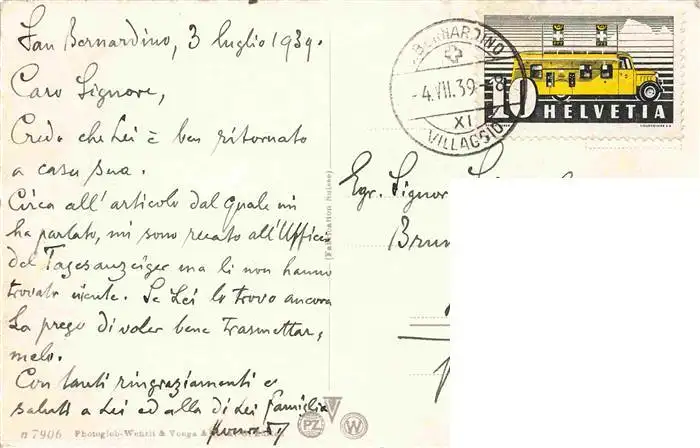 San Bernardino, 3 luglio 1939.
Caro Signore,
Credo che Lei è ben ritornato
a casa sua.
Circa all'articolo dal quale mi
ha parlato, mi sono recato all'Ufficio
del Tagesanzeiger ma lì non hanno
trovato niente. Se Lei lo trova ancora
La prego di voler bene trasmettar,
melo.
Con tanti ringraziamenti e
saluti a Lei ed alla di Lei famiglia
n 7906 Photoglob-Wehrli & Vouga &
PZ W
(Fabrication Suisse)
S. BERNARDINO
-4.VII.39. 8
XI
VILLAGGIO
10 HELVETIA
Egr. Signor
Brun